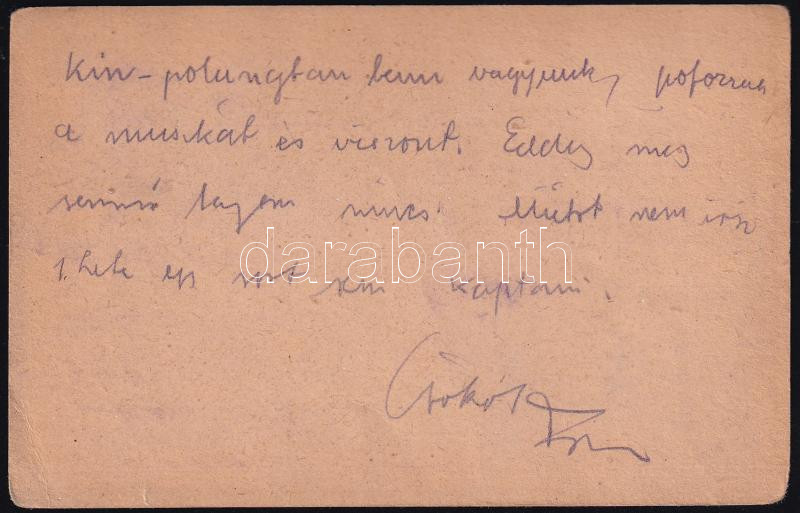 Kin-polungban benn vagyunk, pofozzuk
a muszkát és viszont. Eddig még
semmi bajom nincs. Miért nem írsz
1 hete egy sort sem kaptam.
darabanth
Csókol